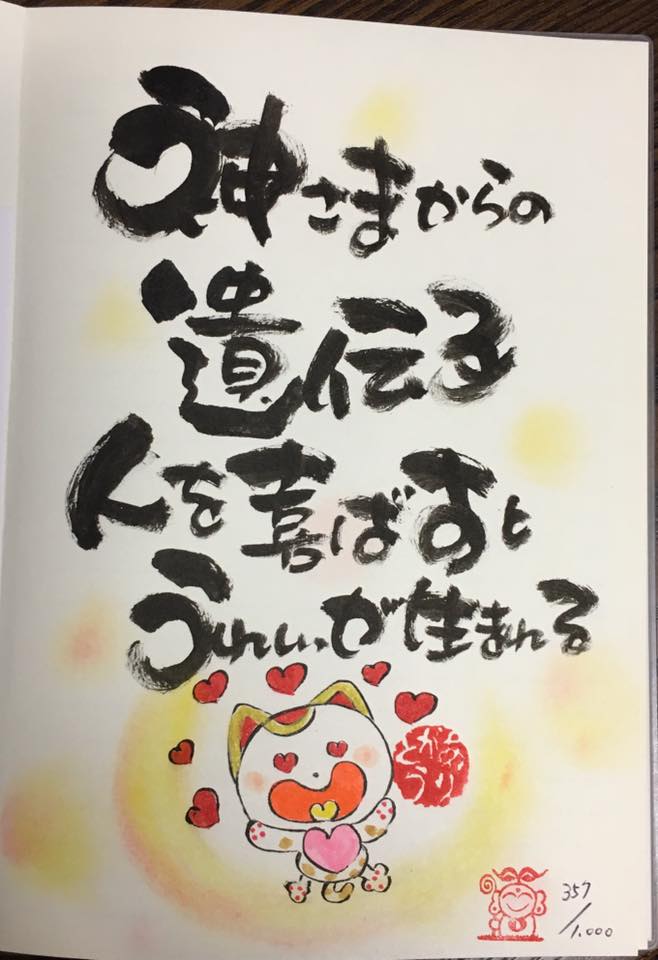 神さまからの
遺伝子
人を喜ばすと
うれしいが生まれる
357/1.000